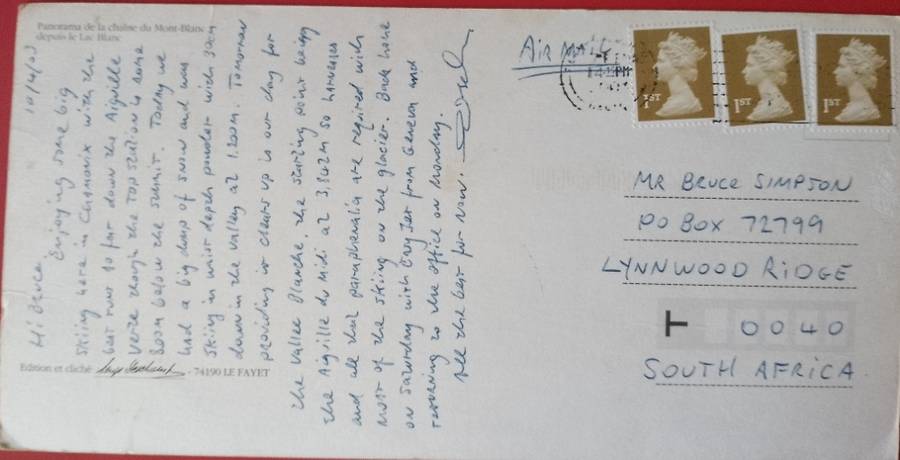 Panorama de la chaîne du Mont-Blanc
depuis le Lac Blanc
10/4/03
Hi Bruce,
Enjoying some big
skiing here in Chamonix with the
best run so far down the Aiguille
Verte though the top station is some
800m below the summit. Today we
had a big dump of snow and was
skiing in waist depth powder with 30cm
down in the valley at 1,200m. Tomorrow
providing it clears up is our day for
the Vallee Blanche, the starting point being
the Aiguille du Midi at 3,842m so harnesses
and all that paraphernalia are required with
most of the skiing on the glacier. Back home
on Saturday with EasyJet from Geneva and
returning to the office on Monday.
All the best for now.
Edition et cliché
- 74190 LE FAYET
AIR MAIL
1ST
1ST
1ST
MR BRUCE SIMPSON
PO BOX 72799
LYNNWOOD RIDGE
T 0040
SOUTH AFRICA